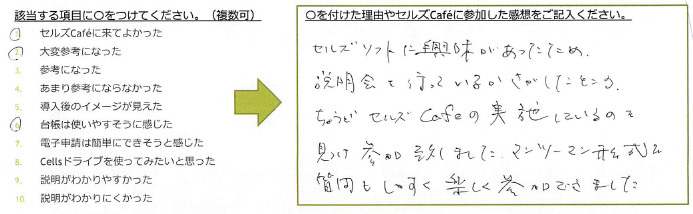 該当する項目に〇をつけてください。（複数可）
1. セルズCaféに来てよかった
2. 大変参考になった
3. 参考になった
4. あまり参考にならなかった
5. 導入後のイメージが見えた
6. 台帳は使いやすそうに感じた
7. 電子申請は簡単にできそうと感じた
8. Cellsドライブを使ってみたいと思った
9. 説明がわかりやすかった
10. 説明がわかりにくかった
〇を付けた理由やセルズCaféに参加した感想をご記入ください。
セルズソフトに興味があったため、
説明会を行っているかさがしたところ、
ちょうどセルズCafeの実施しているのを
見つけ参加致しました。マンツーマン形式で
質問もしやすく楽しく参加できました